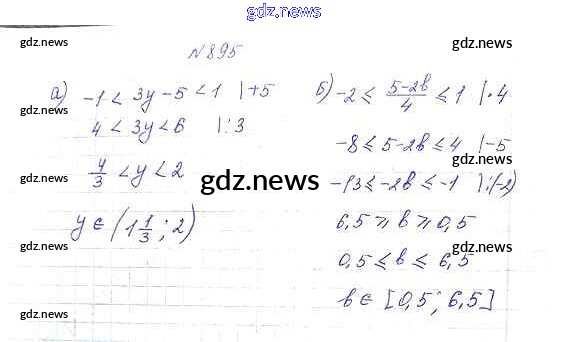 gdz.news
№895
gdz.news
gdz.news
а) -1 < 3y - 5 < 1 | +5
4 < 3y < 6 | :3
4/3 < y < 2
y ∈ (1 1/3; 2)
б) -2 ≤ (5-2b)/4 ≤ 1 | ·4
-8 ≤ 5-2b ≤ 4 | -5
-13 ≤ -2b ≤ -1 | :(-2)
6,5 ≥ b ≥ 0,5
0,5 ≤ b ≤ 6,5
b ∈ [0,5; 6,5]
gdz.news
gdz.news
gdz.news
gdz.news
gdz.news
gdz.news
gdz.news
gdz.news